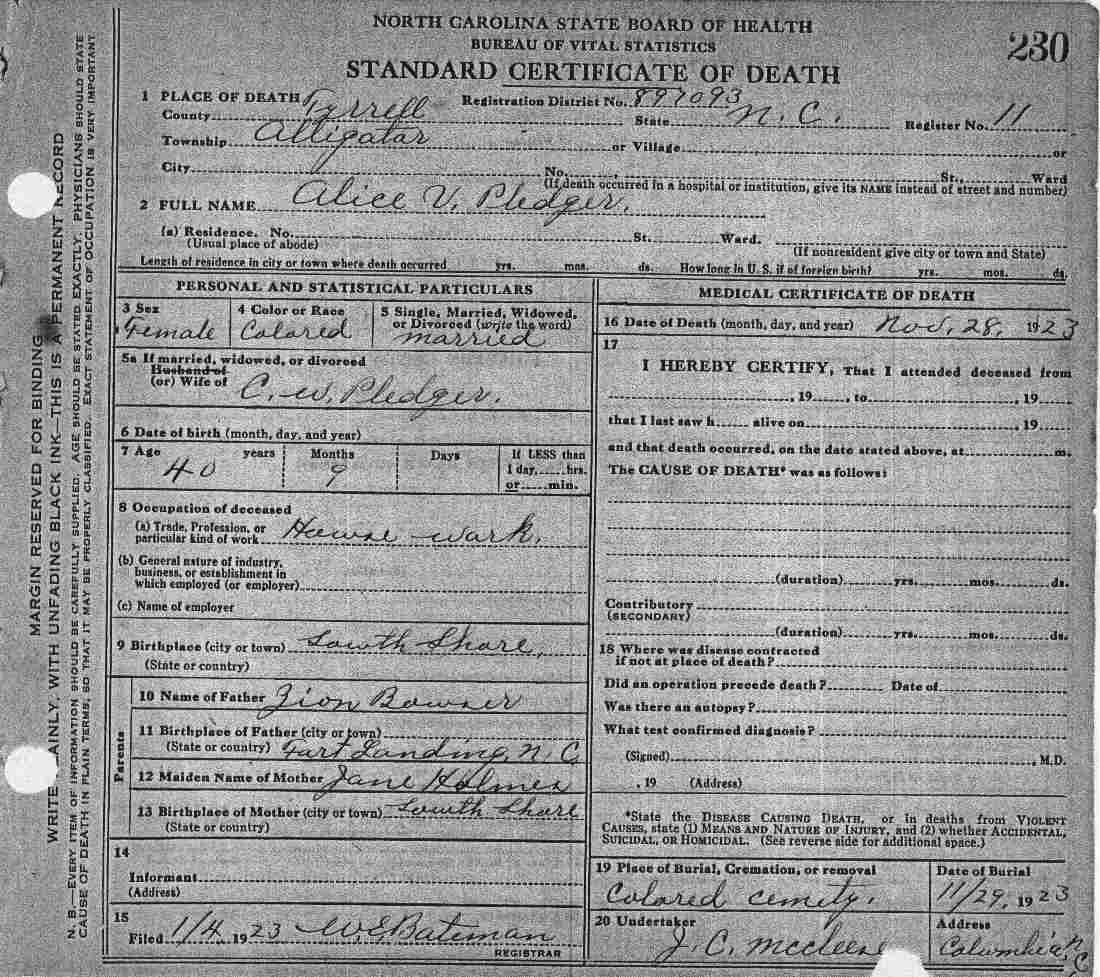 NORTH CAROLINA STATE BOARD OF HEALTH
BUREAU OF VITAL STATISTICS
230
STANDARD CERTIFICATE OF DEATH
1 PLACE OF DEATH Registration District No. 897093
County Tyrrell State N.C. Register No. 11
Township Alligator or Village or
City No. , St., Ward
(If death occurred in a hospital or institution, give its NAME instead of street and number)
2 FULL NAME Alice V. Pledger.
(a) Residence. No. St. Ward.
(Usual place of abode) (If nonresident give city or town and State)
Length of residence in city or town where death occurred yrs. mos. ds. How long in U. S. if of foreign birth? yrs. mos. ds.
PERSONAL AND STATISTICAL PARTICULARS
3 Sex 4 Color or Race 5 Single, Married, Widowed, or Divorced (write the word)
Female Colored married
5a If married, widowed, or divorced
Husband of
(or) Wife of C. W. Pledger.
6 Date of birth (month, day, and year)
7 Age years Months Days If LESS than
40 9 1 day, hrs.
or min.
8 Occupation of deceased
(a) Trade, Profession, or
particular kind of work House work.
(b) General nature of industry,
business, or establishment in
which employed (or employer)
(c) Name of employer
9 Birthplace (city or town) South Shore,
(State or country)
Parents
10 Name of Father Zion Bowser
11 Birthplace of Father (city or town)
(State or country) Fort Landing, N. C
12 Maiden Name of Mother Jane Holmes
13 Birthplace of Mother (city or town) South Shore
(State or country)
14
Informant
(Address)
15
Filed 1/4, 1923 W.E. Bateman
REGISTRAR
MEDICAL CERTIFICATE OF DEATH
16 Date of Death (month, day, and year) Nov, 28, 1923
17
I HEREBY CERTIFY, That I attended deceased from
, 19 , to , 19
that I last saw h alive on , 19
and that death occurred, on the date stated above, at m.
The CAUSE OF DEATH* was as follows:
(duration) yrs. mos. ds.
Contributory
(SECONDARY)
(duration) yrs. mos. ds.
18 Where was disease contracted
if not at place of death?
Did an operation precede death? Date of
Was there an autopsy?
What test confirmed diagnosis?
(Signed) , M.D.
, 19 (Address)
*State the DISEASE CAUSING DEATH, or in deaths from VIOLENT
CAUSES, state (1) MEANS AND NATURE OF INJURY, and (2) whether ACCIDENTAL,
SUICIDAL, OR HOMICIDAL. (See reverse side for additional space.)
19 Place of Burial, Cremation, or removal Date of Burial
Colored cemety. 11/29, 1923
20 Undertaker Address
J. C. Columbia, N C
MARGIN RESERVED FOR BINDING
WRITE PLAINLY, WITH UNFADING BLACK INK—THIS IS A PERMANENT RECORD
N. B.—EVERY ITEM OF INFORMATION SHOULD BE CAREFULLY SUPPLIED. AGE SHOULD BE STATED EXACTLY. PHYSICIANS SHOULD STATE
CAUSE OF DEATH IN PLAIN TERMS, SO THAT IT MAY BE PROPERLY CLASSIFIED. EXACT STATEMENT OF OCCUPATION IS VERY IMPORTANT